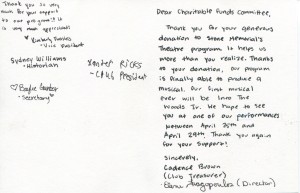 Thank you so very
much for your support
to our program!! It
is very much appreciated!
- Vice President
Sydney Williams
- Historian
Hunter Ricks
- Club President
- Secretary
Dear Charitable Funds Committee,
Thank you for your generous
donation to Stone Memorial's
Theatre program. It helps us
more than you realize. Thanks
to your donation, our program
is finally able to produce a
musical. Our first musical
ever will be Into The
Woods Jr. We hope to see
you at one of our performances
between April 26th and
April 29th. Thank you again
for your support!
Sincerely,
Cadence Brown
(Club Treasurer)
(Director)